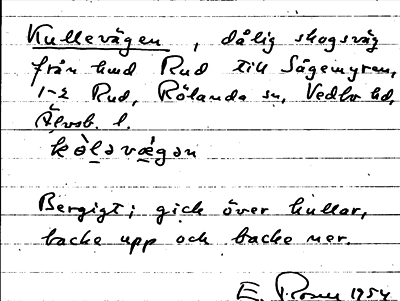 Kullevägen, dålig skogsväg
från hmd Rud till Sågemyren,
1-2 Rud, Rölanda sn, Vedbo hd,
Älvsb. l.
kòləvǽgən
Bergigt; gick över kullar,
backe upp och backe ner.
E. 1954